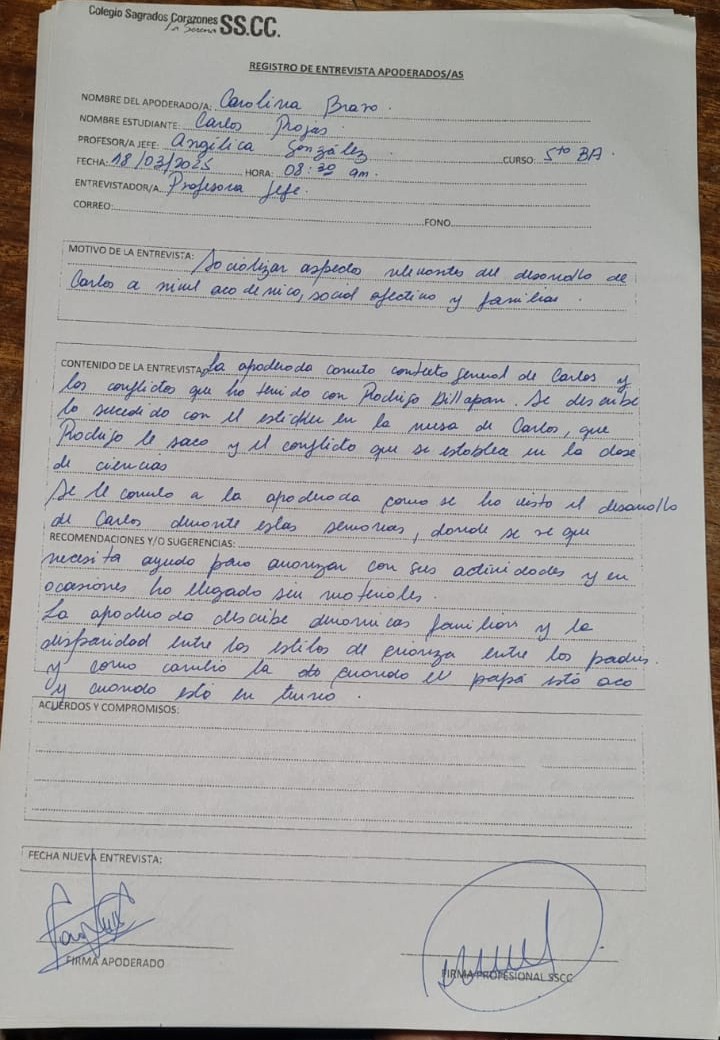 Colegio Sagrados Corazones SS.CC.
La Serena
REGISTRO DE ENTREVISTA APODERADOS/AS
NOMBRE DEL APODERADO/A: Carolina Bravo.
NOMBRE ESTUDIANTE: Carlos Rojas.
PROFESOR/A JEFE: Angélica González CURSO: 5to BA.
FECHA: 18/03/2025 HORA: 08:30 am.
ENTREVISTADOR/A Profesora Jefe.
CORREO: FONO
MOTIVO DE LA ENTREVISTA: Socializar aspectos relevantes del desarrollo de
Carlos a nivel academico, social afectivo y familiar.
CONTENIDO DE LA ENTREVISTA: La apoderada comenta contexto general de Carlos y
los conflictos que ha tenido con Rodrigo Dillapan. Se describe
lo sucedido con el esticker en la mesa de Carlos, que
Rodrigo le saco y el conflicto que se establece en la clase
de ciencias
Se le comenta a la apoderada como se ha visto el desarrollo
de Carlos durante estas semanas, donde se ve que
RECOMENDACIONES Y/O SUGERENCIAS:
necesita ayuda para avanzar con sus actividades y en
ocasiones ha llegado sin materiales.
La apoderada describe dinamicas familiares y la
disparidad entre los estilos de crianza entre los padres.
y como cambia la cuando el papá está aca
y cuando está en turno.
ACUERDOS Y COMPROMISOS:
FECHA NUEVA ENTREVISTA:
FIRMA APODERADO
FIRMA PROFESIONAL SSCC